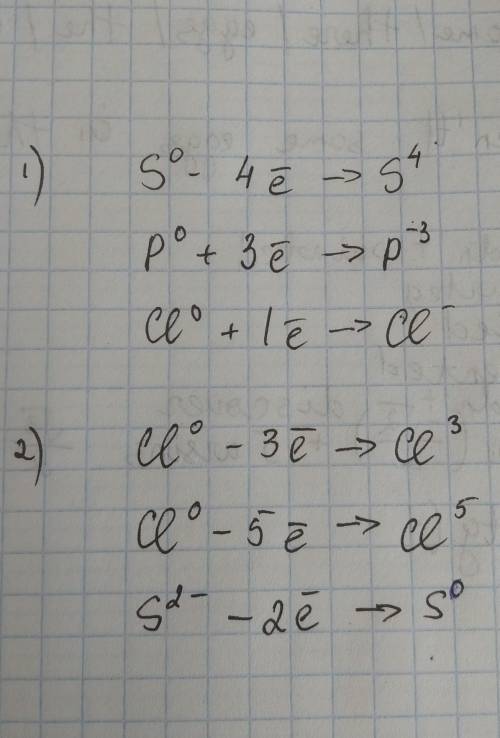 1) S⁰ - 4ē → S⁴
P⁰ + 3ē → P⁻³
Cl⁰ + 1ē → Cl⁻
2) Cl⁰ - 3ē → Cl³
Cl⁰ - 5ē → Cl⁵
S²⁻ - 2ē → S⁰